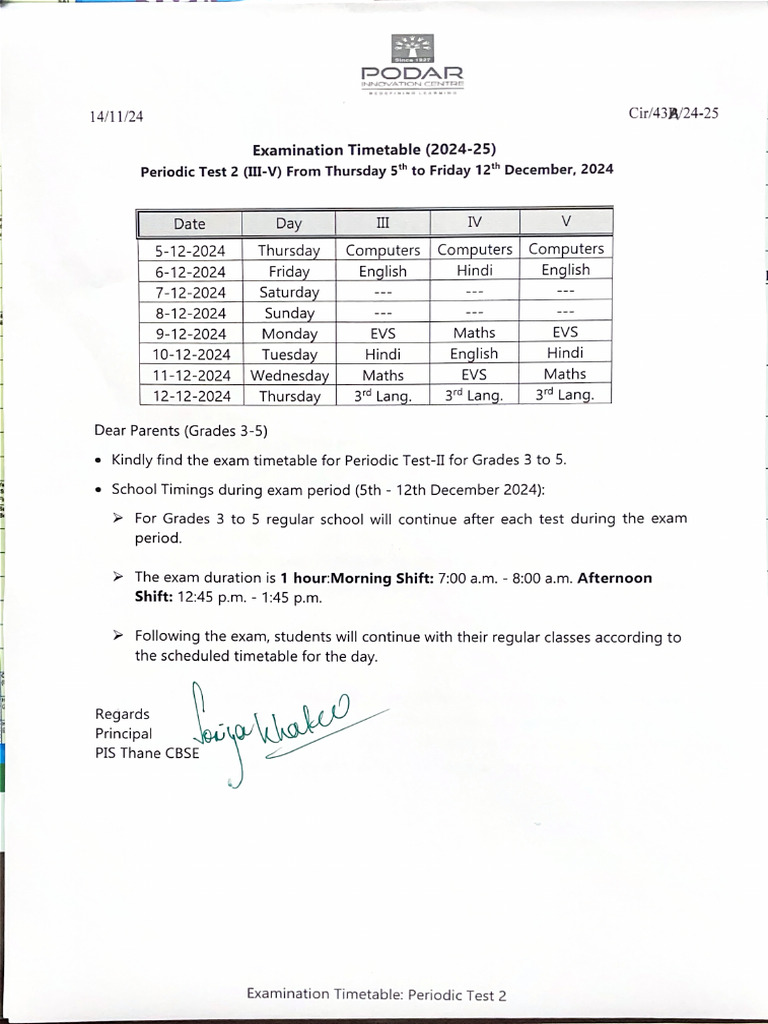 Since 1927
PODAR
INNOVATION CENTRE
REDEFINING LEARNING
14/11/24 Cir/43A/24-25
Examination Timetable (2024-25)
Periodic Test 2 (III-V) From Thursday 5th to Friday 12th December, 2024
Date Day III IV V
5-12-2024 Thursday Computers Computers Computers
6-12-2024 Friday English Hindi English
7-12-2024 Saturday --- --- ---
8-12-2024 Sunday --- --- ---
9-12-2024 Monday EVS Maths EVS
10-12-2024 Tuesday Hindi English Hindi
11-12-2024 Wednesday Maths EVS Maths
12-12-2024 Thursday 3rd Lang. 3rd Lang. 3rd Lang.
Dear Parents (Grades 3-5)
• Kindly find the exam timetable for Periodic Test-II for Grades 3 to 5.
• School Timings during exam period (5th - 12th December 2024):
➢ For Grades 3 to 5 regular school will continue after each test during the exam
period.
➢ The exam duration is 1 hour:Morning Shift: 7:00 a.m. - 8:00 a.m. Afternoon
Shift: 12:45 p.m. - 1:45 p.m.
➢ Following the exam, students will continue with their regular classes according to
the scheduled timetable for the day.
Regards
Principal
PIS Thane CBSE
Examination Timetable: Periodic Test 2